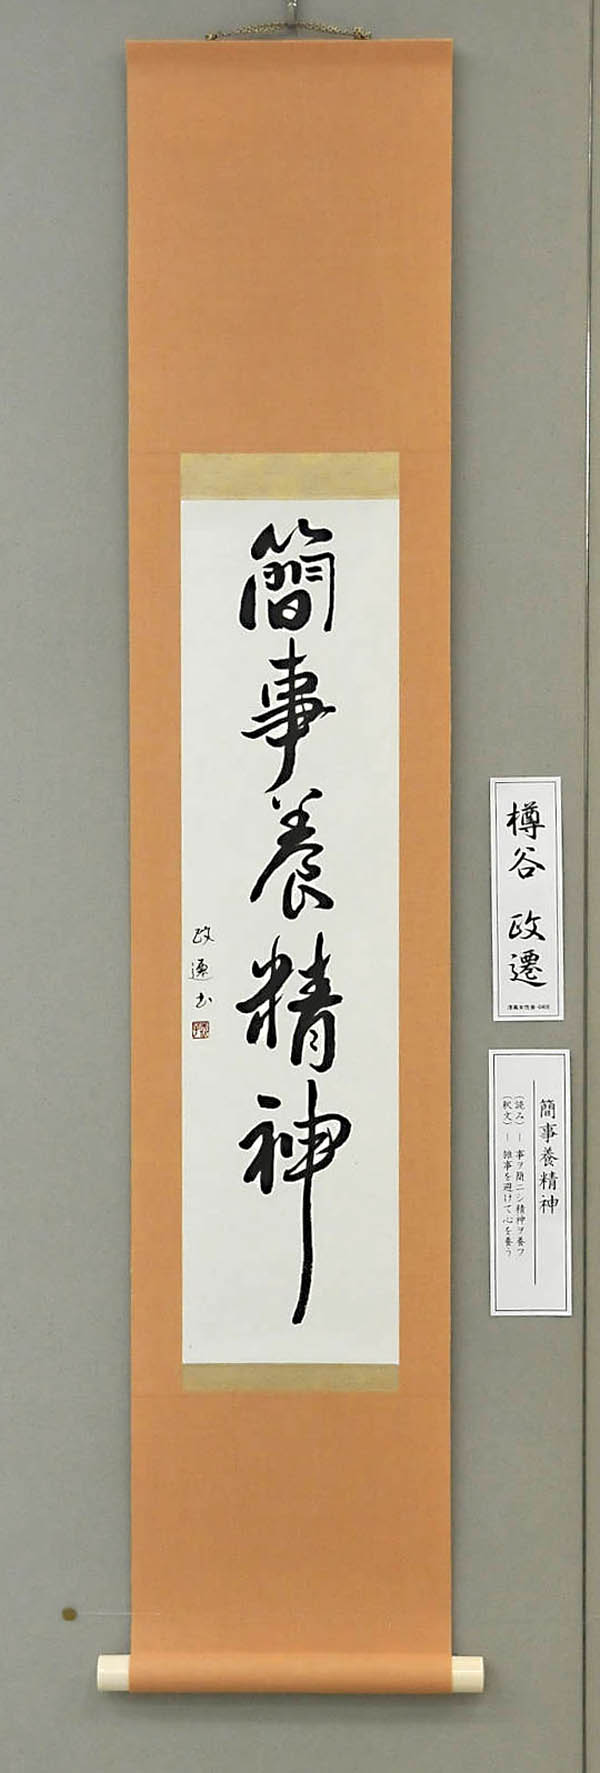 簡事養精神
政遷書
樽谷 政遷
簡事養精神
(読み) ― 事ヲ簡ニシ精神ヲ養フ
(釈文) ― 雑事を避けて心を養う